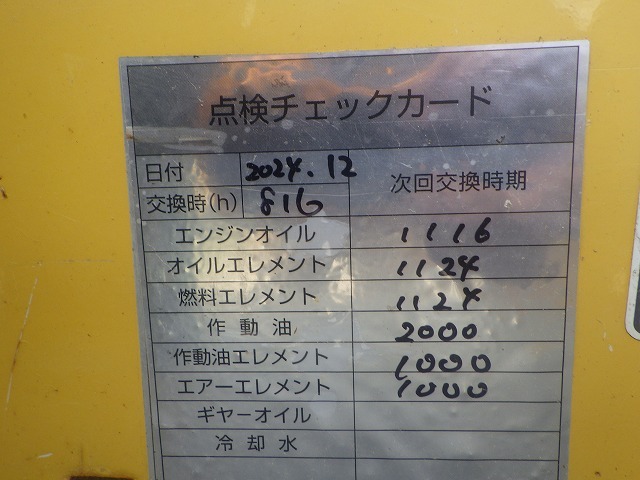 点検チェックカード
日付 2024.12 次回交換時期
交換時(h) 816
エンジンオイル 1116
オイルエレメント 1124
燃料エレメント 1124
作動油 2000
作動油エレメント 1000
エアーエレメント 1000
ギヤーオイル
冷却水